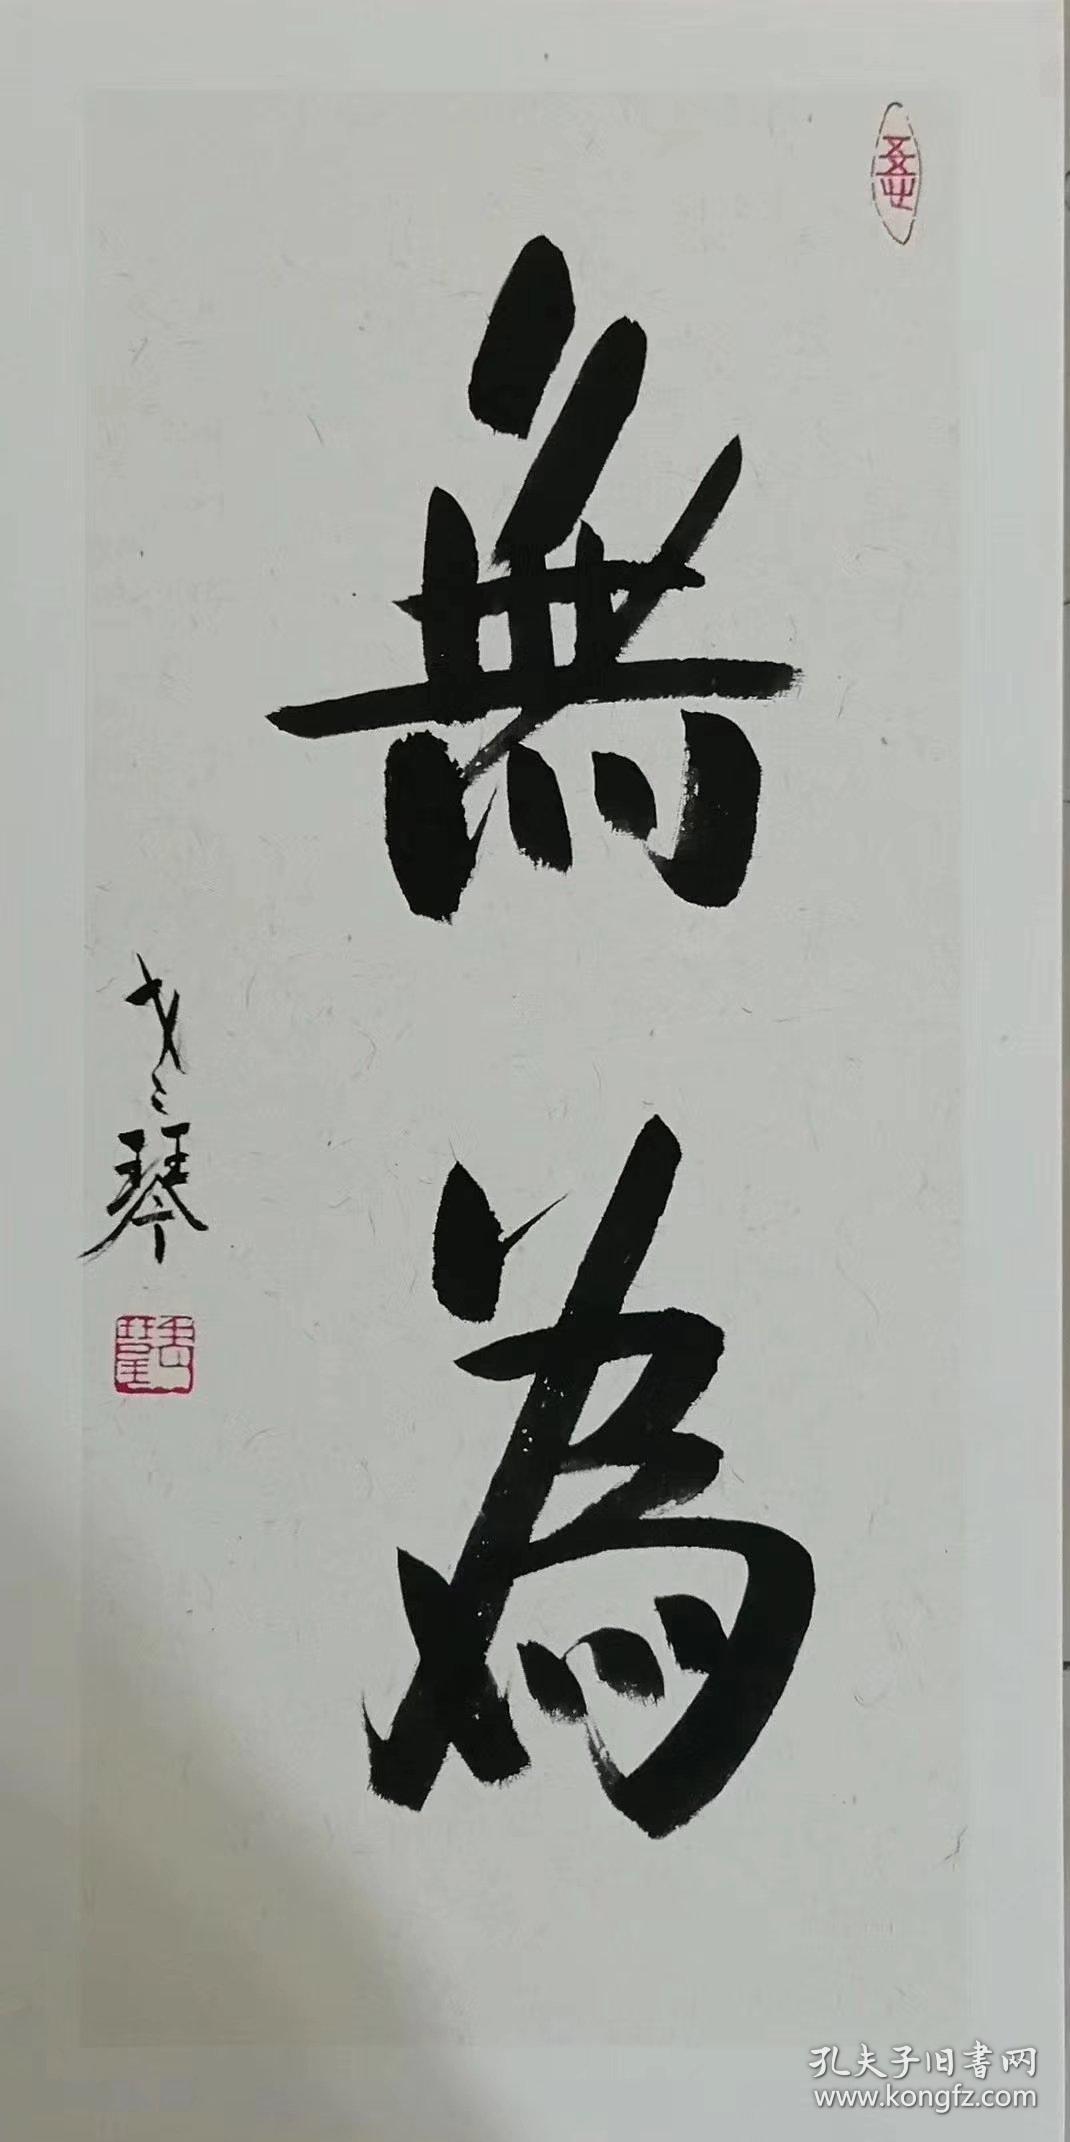 無為
琴
孔夫子旧書网
www.kongfz.com